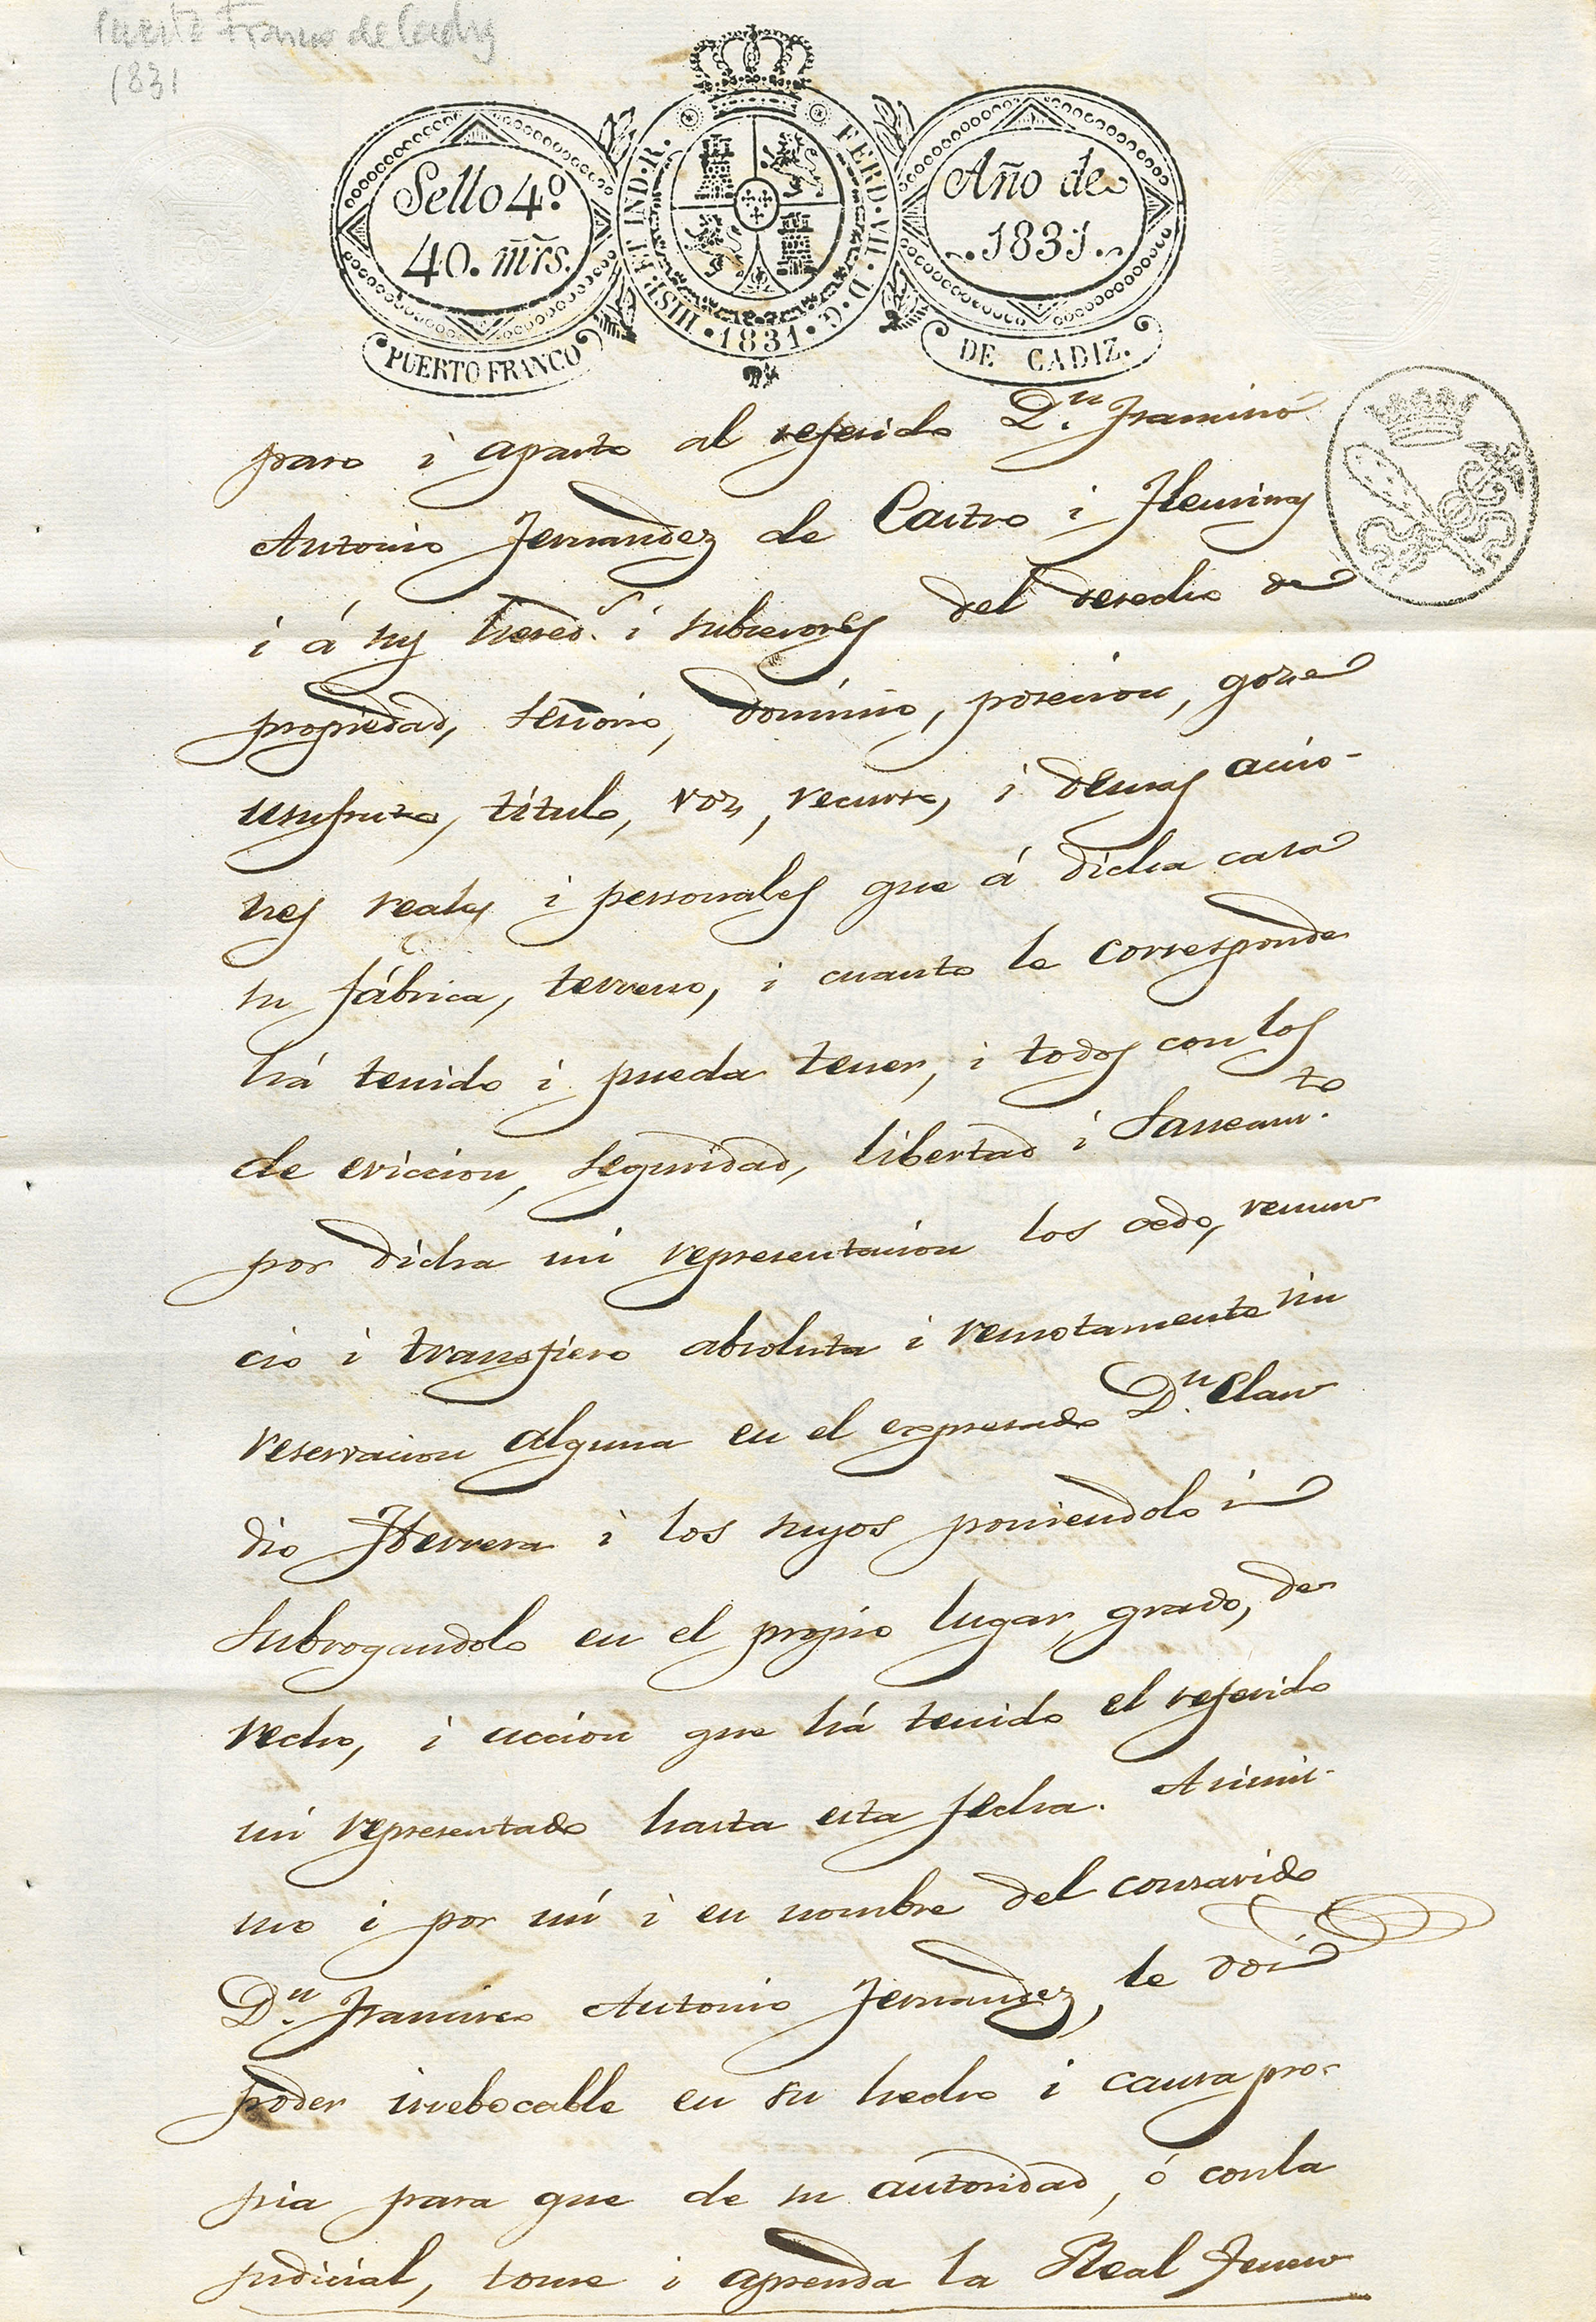 Puerto Franco de Cadiz
1831
Sello 4º
40. mrs.
PUERTO FRANCO
HISP. ET IND. R.
FERD. VII. D. G.
1831
Año de
1831
DE CADIZ.
paro i aparto al referido Dn. Francisco
Antonio Fernandez de Castro i Fleming
i á sus hereds. i subcesores del derecho de
propiedad, señorio, dominio, posesion, goze
usufruto, título, voz, recurso, i demas accio-
nes reales i personales que á dicha casa
su fábrica, terreno, i cuanto le corresponde
há tenido i pueda tener, i todos con los
de eviccion, seguridad, libertad i Saneamto.
por dicha mi representacion los cedo, renun
cio i transfiero absoluta i remotamente sin
reservacion alguna en el expresado Dn. Clau
dio Herrera i los suyos poniendolo i
Subrogandolo en el propio lugar, grado, de
recho, i accion que há tenido el referido
mi representado hasta esta fecha. Asimis-
mo i por mí i en nombre del consavido
Dn. Francisco Antonio Fernandez, le doi
poder irrebocable en su hecho i causa pro-
pia para que de su autoridad, ó con la
judicial, tome i aprenda la Real Tenen